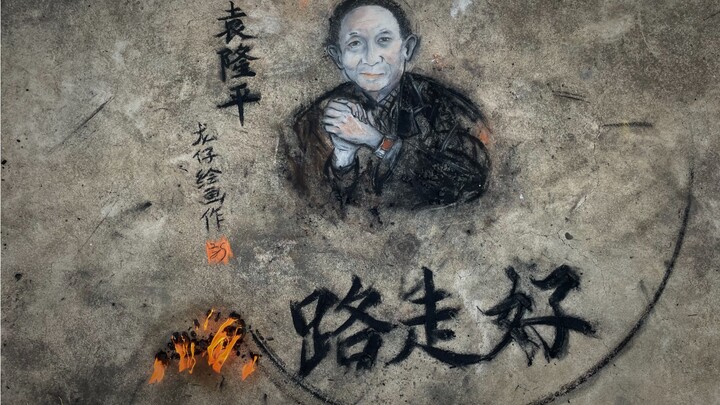 袁隆平
龙仔绘画作
路走好